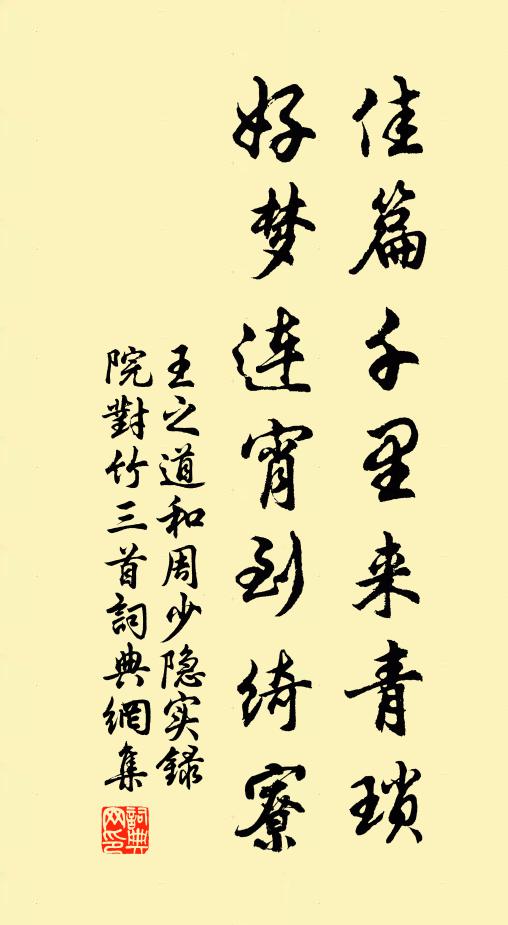 佳篇千里来青琐
好梦连宵到绮寮
王之道和周少隐实録
院對竹三首詞典網集
詞典
网印